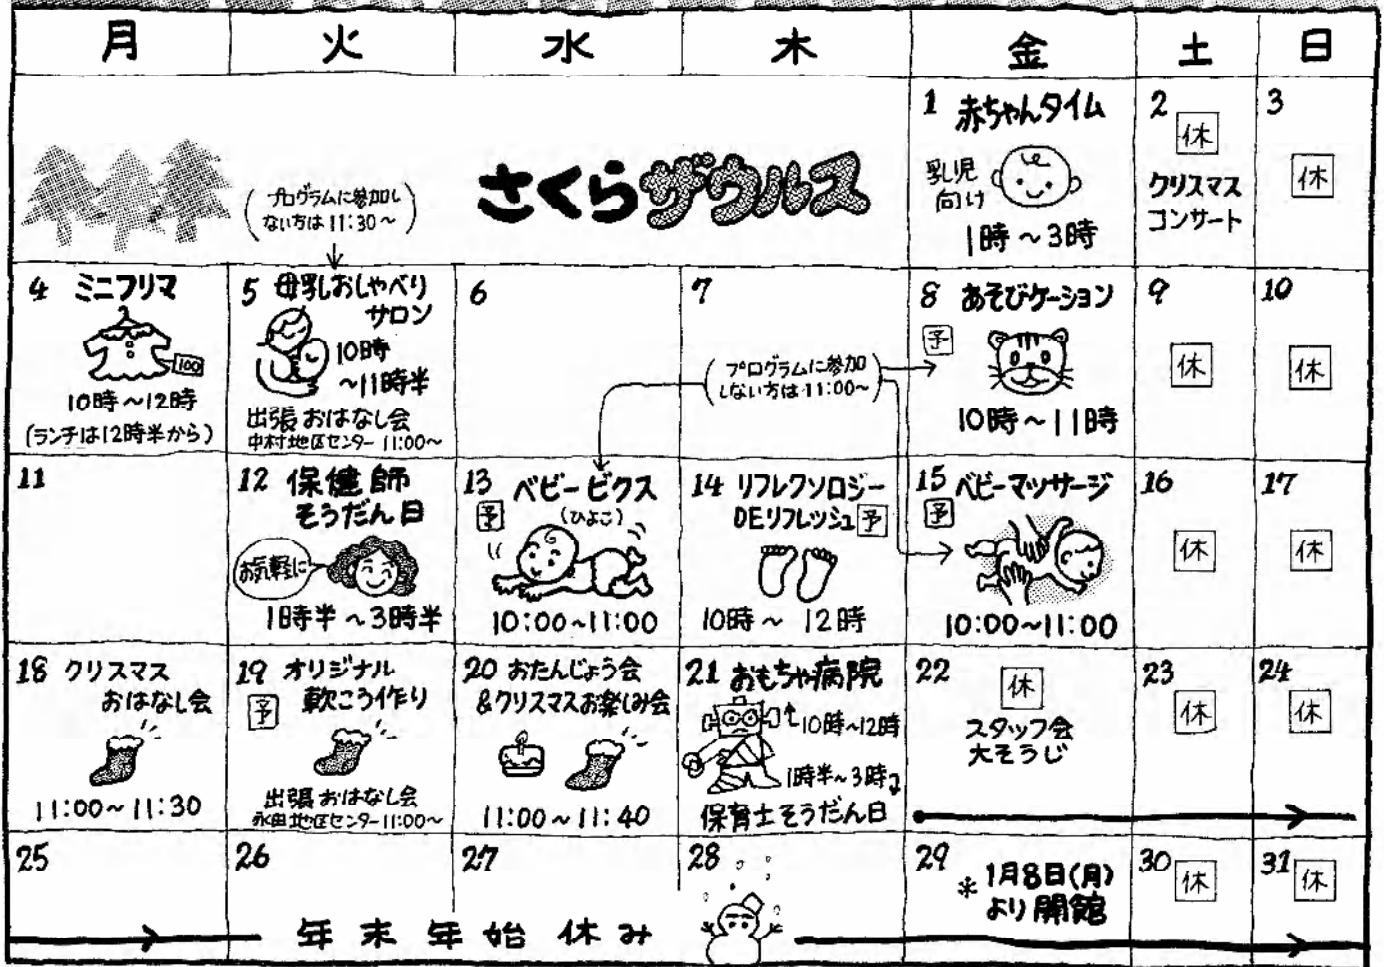 月 火 水 木 金 土 日
(プログラムに参加し
ない方は11:30〜)
さくらザウルス
1 赤ちゃんタイム
乳児
向け
1時〜3時
2
休
クリスマス
コンサート
3
休
4 ミニフリマ
100
10時〜12時
(ランチは12時半から)
5 母乳おしゃべり
サロン
10時
〜11時半
出張おはなし会
中村地区センター 11:00〜
6
7
(プログラムに参加
しない方は11:00〜)
8 あそびケーション
予
10時〜11時
9
休
10
休
11
12 保健師
そうだん日
お気軽に
1時半〜3時半
13 ベビービクス
予
(ひよこ)
10:00〜11:00
14 リフレクソロジー
DEリフレッシュ 予
10時〜12時
15 ベビーマッサージ
予
10:00〜11:00
16
休
17
休
18 クリスマス
おはなし会
11:00〜11:30
19 オリジナル
予
軟こう作り
出張おはなし会
永田地区センター 11:00〜
20 おたんじょう会
&クリスマスお楽しみ会
11:00〜11:40
21 おもちゃ病院
10時〜12時
1時半〜3時
保育士そうだん日
22
休
スタッフ会
大そうじ
23
休
24
休
25
26
27
28
年末年始休み
29
*1月8日(月)
より開館
30
休
31
休